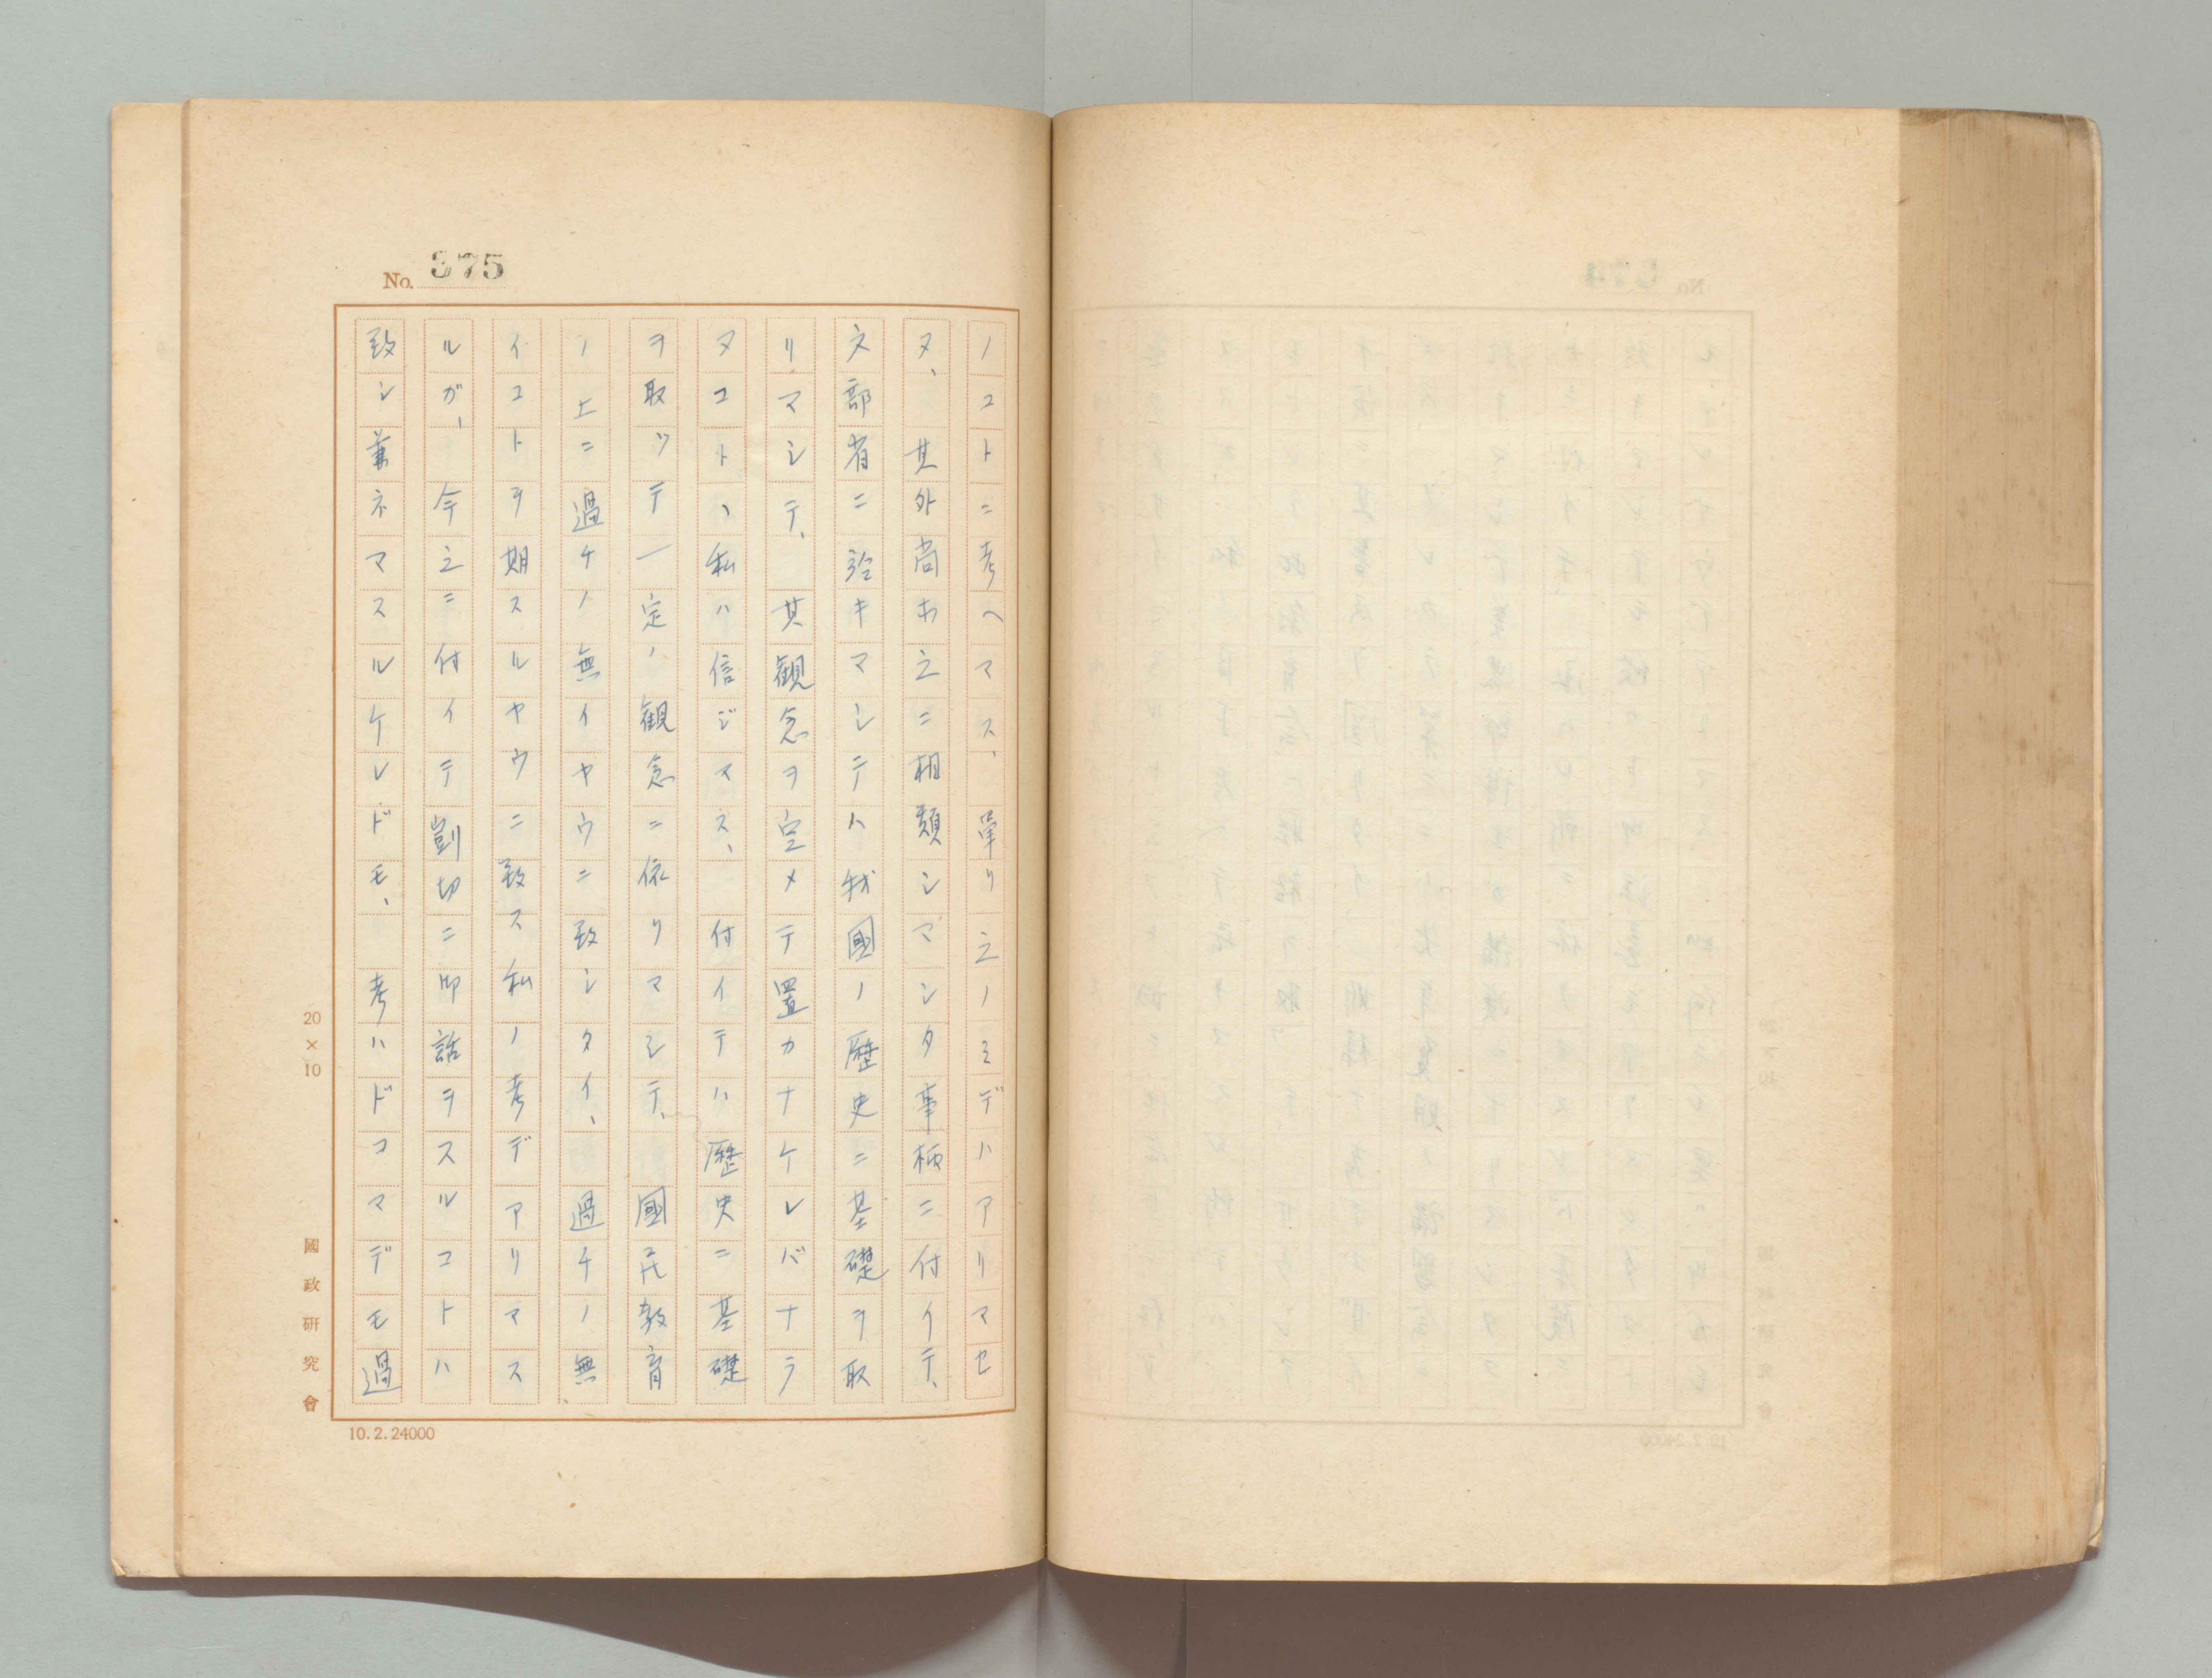 No. 375
ノコトニ考ヘマス、單リ之ノミデハアリマセ
ヌ、其外尚ホ之ニ相類シマシタ事柄ニ付イテ、
文部省ニ於キマシテハ我國ノ歴史ニ基礎ヲ取
リマシテ、其観念ヲ定メテ置カナケレバナラ
ヌコト、私ハ信ジマス、付イテハ歴史ニ基礎
ヲ取ッテ一定ノ観念ニ依リマシテ、國民教育
ノ上ニ過チノ無イヤウニ致シタイ、過チノ無
イコトヲ期スルヤウニ致ス私ノ考デアリマス
ルガ、今之ニ付イテ剴切ニ御話ヲスルコトハ
致シ兼ネマスルケレドモ、考ハドコマデモ過
20×10
國政研究會
10.2.24000